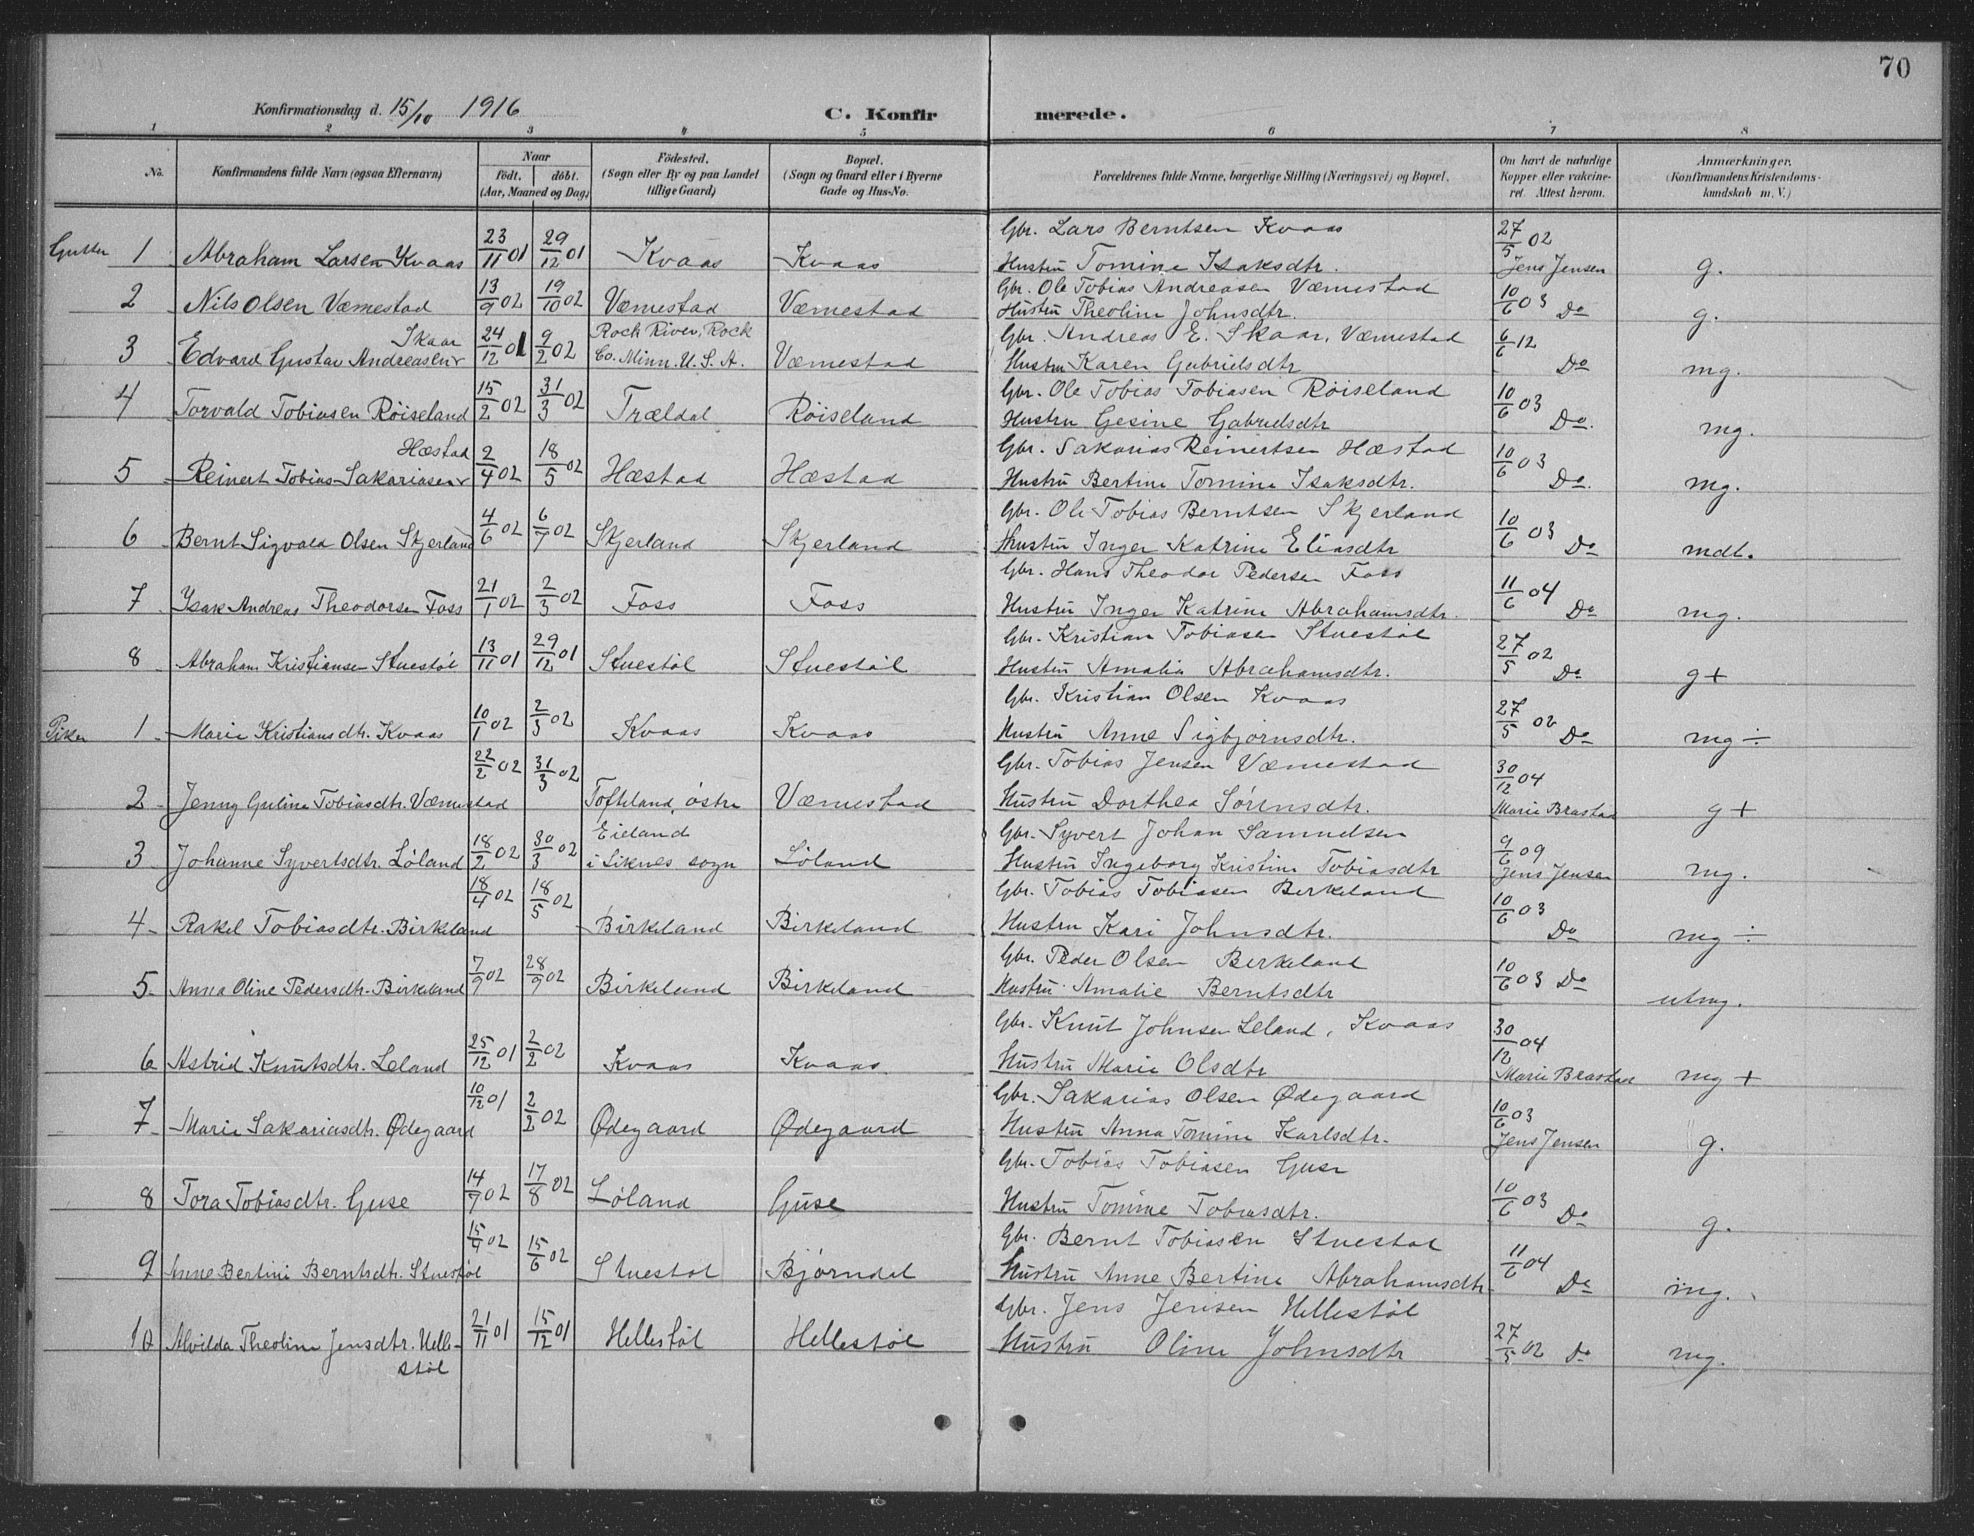 70
Konfirmationsdag d. 15/10 1916 C. Konfirmerede.
1 2 3 4 5 6 7 8
No. Konfirmandens fulde Navn (ogsaa Efternavn) Naar født. døbt. (Aar, Maaned og Dag) Fødested. (Sogn eller By og paa Landet tillige Gaard) Bopæl. (Sogn og Gaard eller i Byerne Gade og Hus-No. Forældrenes fulde Navne, borgerlige Stilling (Næringsvei) og Bopæl. Om havt de naturlige Kopper eller vakcineret. Attest herom. Anmærkninger. (Konfirmandens Kristendomskundskab m. V.)
Gutter 1 Abraham Larsen Kvaas 23/11 01 29/12 01 Kvaas Kvaas Gbr. Lars Berntsen Kvaas 27/5 02
Hustru Tomine Isaksdtr. Jens Jensen g.
2 Nils Olsen Væmestad 13/9 02 19/10 02 Væmestad Væmestad Gbr. Ole Tobias Andreasen Væmestad 10/6 03
Hustru Theoline Johnsdtr. Do g.
3 Edvard Gustav Andreasen Skaar 24/12 01 9/2 02 Rock River, Rock Co. Minn. U.S.A. Væmestad Gbr. Andreas E. Skaar, Væmestad 6/6 12
Hustru Karen Gabrielsdtr Do mg.
4 Torvald Tobiasen Røiseland 15/2 02 31/3 02 Trældal Røiseland Gbr. Ole Tobias Tobiasen Røiseland 10/6 03
Hustru Gesine Gabrielsdtr Do. mg.
5 Reinert Tobias Sakariasen Hæstad 2/4 02 18/5 02 Hæstad Hæstad Gbr. Sakarias Reinertsen Hæstad 10/6 03
Hustru Bertine Tomine Isaksdtr. Do. mg.
6 Bernt Sigvald Olsen Skjerland 4/6 02 6/7 02 Skjerland Skjerland Gbr. Ole Tobias Berntsen Skjerland 10/6 03
Hustru Inger Katrine Eliasdtr Do mdt.
7 Isak Andreas Theodorsen Foss 21/1 02 2/3 02 Foss Foss Gbr. Hans Theodor Pedersen Foss 11/6 04
Hustru Inger Katrine Abrahamsdtr. Do mg.
8 Abraham Kristiansen Stuestøl 13/11 01 29/12 01 Stuestøl Stuestøl Gbr. Kristian Tobiasen Stuestøl 27/5 02
Hustru Amalia Abrahamsdtr. Do g+
Piker 1 Marie Kristiansdtr. Kvaas 10/1 02 2/3 02 Kvaas Kvaas Gbr. Kristian Olsen Kvaas 27/5 02
Hustru Anne Sigbjørnsdtr. Do mg ÷
2 Jenny Guline Tobiasdtr. Væmestad 22/2 02 31/3 02 Tofteland østre Væmestad Gbr. Tobias Jensen Væmestad 30/12 04
Hustru Dorthea Sørensdtr. Marie Brastad g+
3 Johanne Syvertsdtr. Løland 18/2 02 30/3 02 Eieland i Liknes sogn Løland Gbr. Syvert Johan Samuelsen 9/6 09
Hustru Ingeborg Kristine Tobiasdtr Jens Jensen mg.
4 Rakel Tobiasdtr. Birkeland 18/4 02 18/5 02 Birkeland Birkeland Gbr. Tobias Tobiasen Birkeland 10/6 03
Hustru Kari Johnsdtr. Do mg ÷
5 Anna Oline Pedersdtr. Birkeland 7/9 02 28/9 02 Birkeland Birkeland Gbr. Peder Olsen Birkeland 10/6 03 Do
Hustru Amalie Berntsdtr utmg.
6 Astrid Knutsdtr. Leland 25/12 01 2/2 02 Kvaas Kvaas Gbr. Knut Johnsen Leland, Kvaas 30/12 04
Hustru Marie Olsdtr Marie Brastad mg +
7 Marie Sakariasdtr. Ødegaard 10/12 01 2/2 02 Ødegaard Ødegaard Gbr. Sakarias Olsen Ødegaard 10/6 03
Hustru Anna Tomine Karlsdtr. Jens Jensen g.
8 Tora Tobiasdtr. Guse 14/7 02 17/8 02 Løland Guse Gbr. Tobias Tobiasen Guse 10/6 03
Hustru Tomine Tobiasdtr. Do g.
9 Anne Bertine Berntsdtr. Stuestøl 15/4 02 15/6 02 Stuestøl Bjørndal Gbr. Bernt Tobiasen Stuestøl 11/6 04
Hustru Anne Bertine Abrahamsdtr Do mg.
10 Alvilda Theoline Jensdtr. Hellestøl 21/11 01 15/12 01 Hellestøl Hellestøl Gbr. Jens Jensen Hellestøl
Hustru Oline Johnsdtr 27/5 02 Do mg.